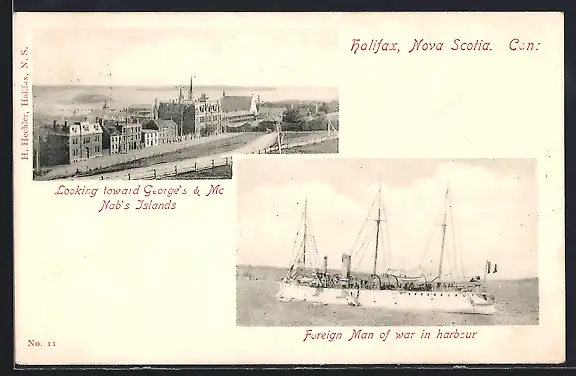 Halifax, Nova Scotia. Can:
H. Hechler, Halifax, N. S.
Looking toward George's & Mc
Nab's Islands
Foreign Man of war in harbour
No. 11